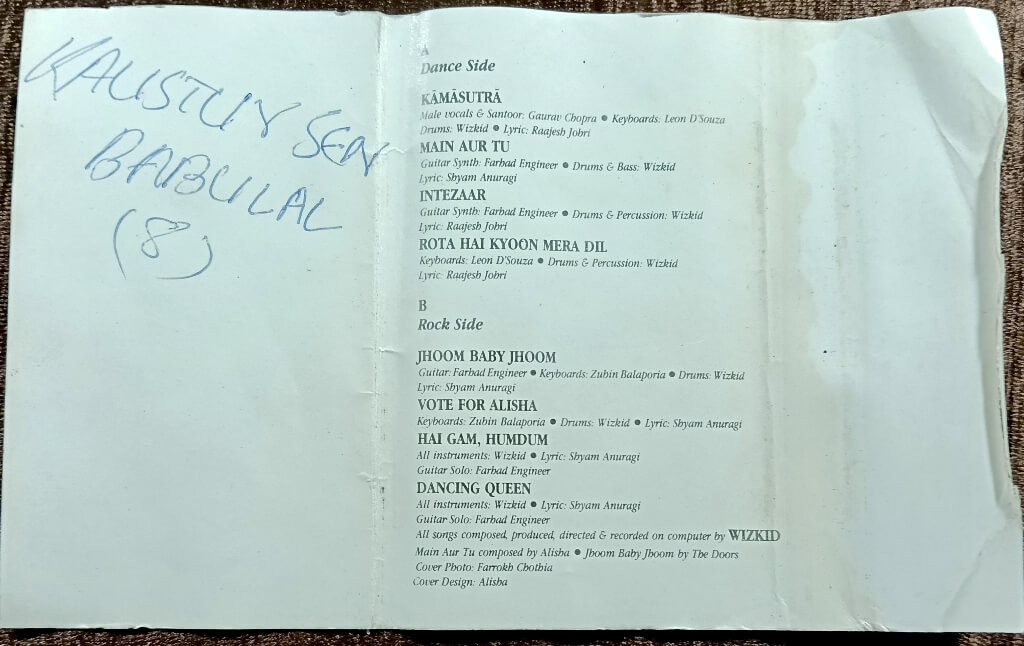 KAUSTUV SEN
BABULAL
(8)
A
Dance Side
KĀMĀSUTRĀ
Male vocals & Santoor: Gaurav Chopra ● Keyboards: Leon D'Souza
Drums: Wizkid ● Lyric: Raajesh Johri
MAIN AUR TU
Guitar Synth: Farhad Engineer ● Drums & Bass: Wizkid
Lyric: Shyam Anuragi
INTEZAAR
Guitar Synth: Farhad Engineer ● Drums & Percussion: Wizkid
Lyric: Raajesh Johri
ROTA HAI KYOON MERA DIL
Keyboards: Leon D'Souza ● Drums & Percussion: Wizkid
Lyric: Raajesh Johri
B
Rock Side
JHOOM BABY JHOOM
Guitar: Farhad Engineer ● Keyboards: Zubin Balaporia ● Drums: Wizkid
Lyric: Shyam Anuragi
VOTE FOR ALISHA
Keyboards: Zubin Balaporia ● Drums: Wizkid ● Lyric: Shyam Anuragi
HAI GAM, HUMDUM
All instruments: Wizkid ● Lyric: Shyam Anuragi
Guitar Solo: Farhad Engineer
DANCING QUEEN
All instruments: Wizkid ● Lyric: Shyam Anuragi
Guitar Solo: Farhad Engineer
All songs composed, produced, directed & recorded on computer by WIZKID
Main Aur Tu composed by Alisha ● Jhoom Baby Jhoom by The Doors
Cover Photo: Farrokh Chothia
Cover Design: Alisha